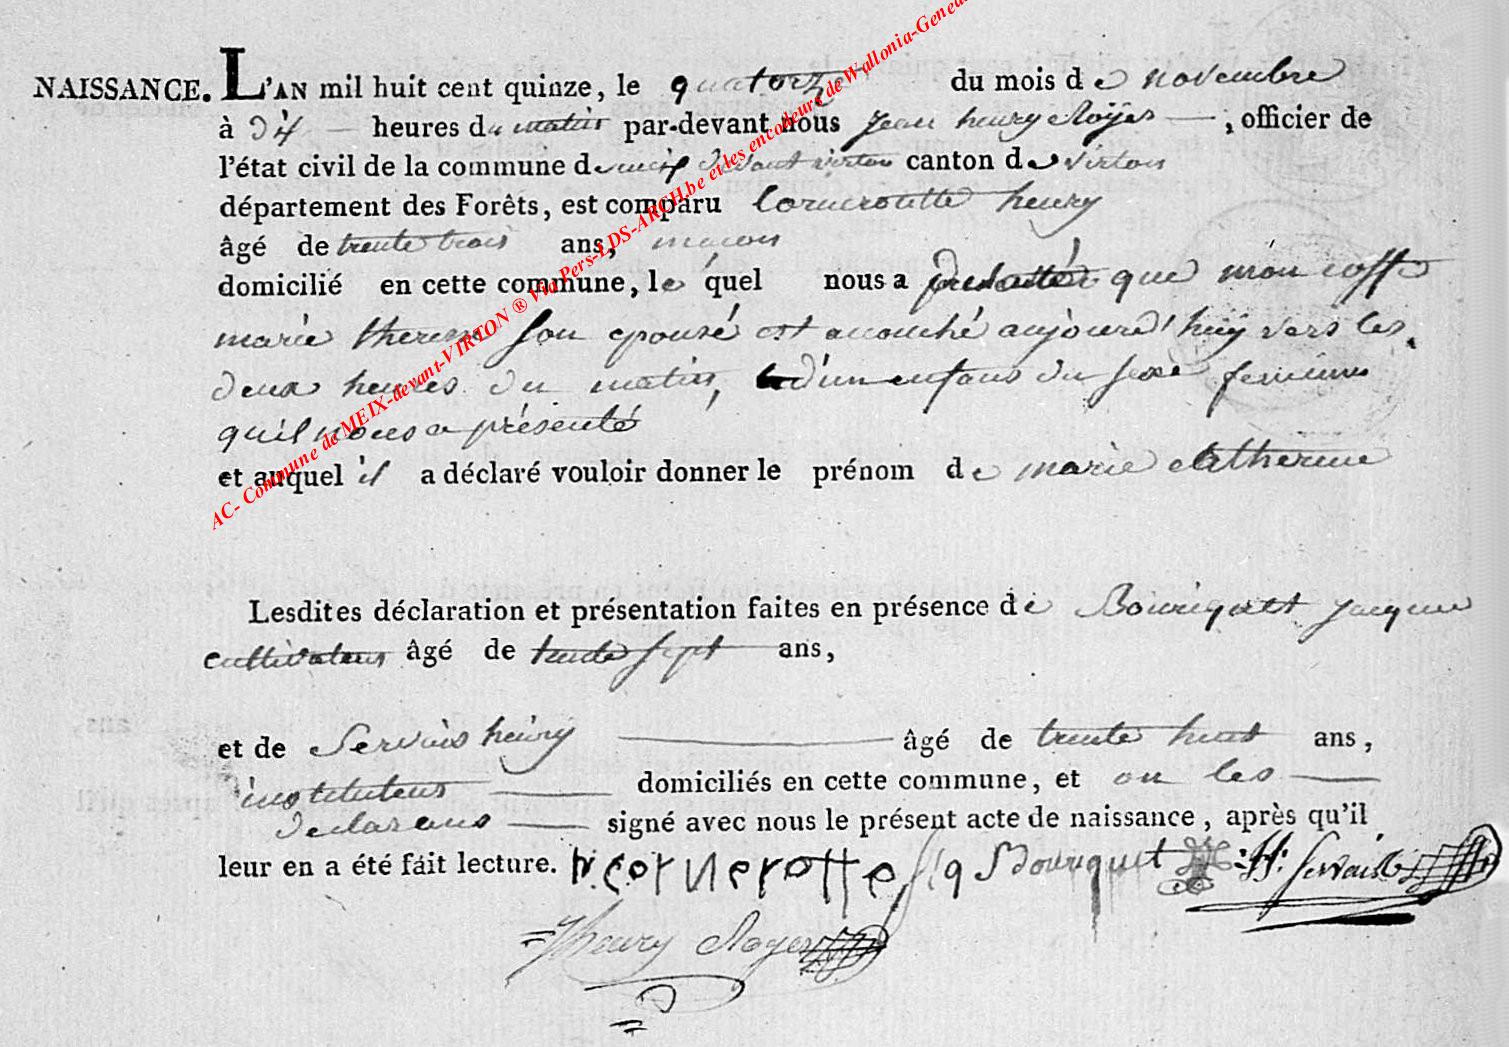 NAISSANCE. L'AN mil huit cent quinze, le quatorze du mois de novembre
à dix heures du matin par-devant nous jean henry Royer, officier de
l'état civil de la commune de meix devant virton canton de virton
département des Forêts, est comparu Cornerotte henry
âgé de trente trois ans, maçon
domicilié en cette commune, le quel nous a que
marie therese son epousé est accouché aujourd'huy vers les
deux heures du matin, d'un enfans du sexe feminin
qu'il nous a présenté
et auquel il a déclaré vouloir donner le prénom de marie Catherine
Lesdites déclaration et présentation faites en présence de Bouriquet jacque
cultivateur âgé de trente sept ans,
et de Servais henry âgé de trente huit ans,
instituteur domiciliés en cette commune, et on les
declarans signé avec nous le présent acte de naissance, après qu'il
leur en a été fait lecture. h. cornerotte Bouriquet H: Servais
henry Royer
AC- Commune de MEIX-devant-VIRTON ® Via Pers-LDS-ARCH.be et les encodeurs de Wallonia-Genea